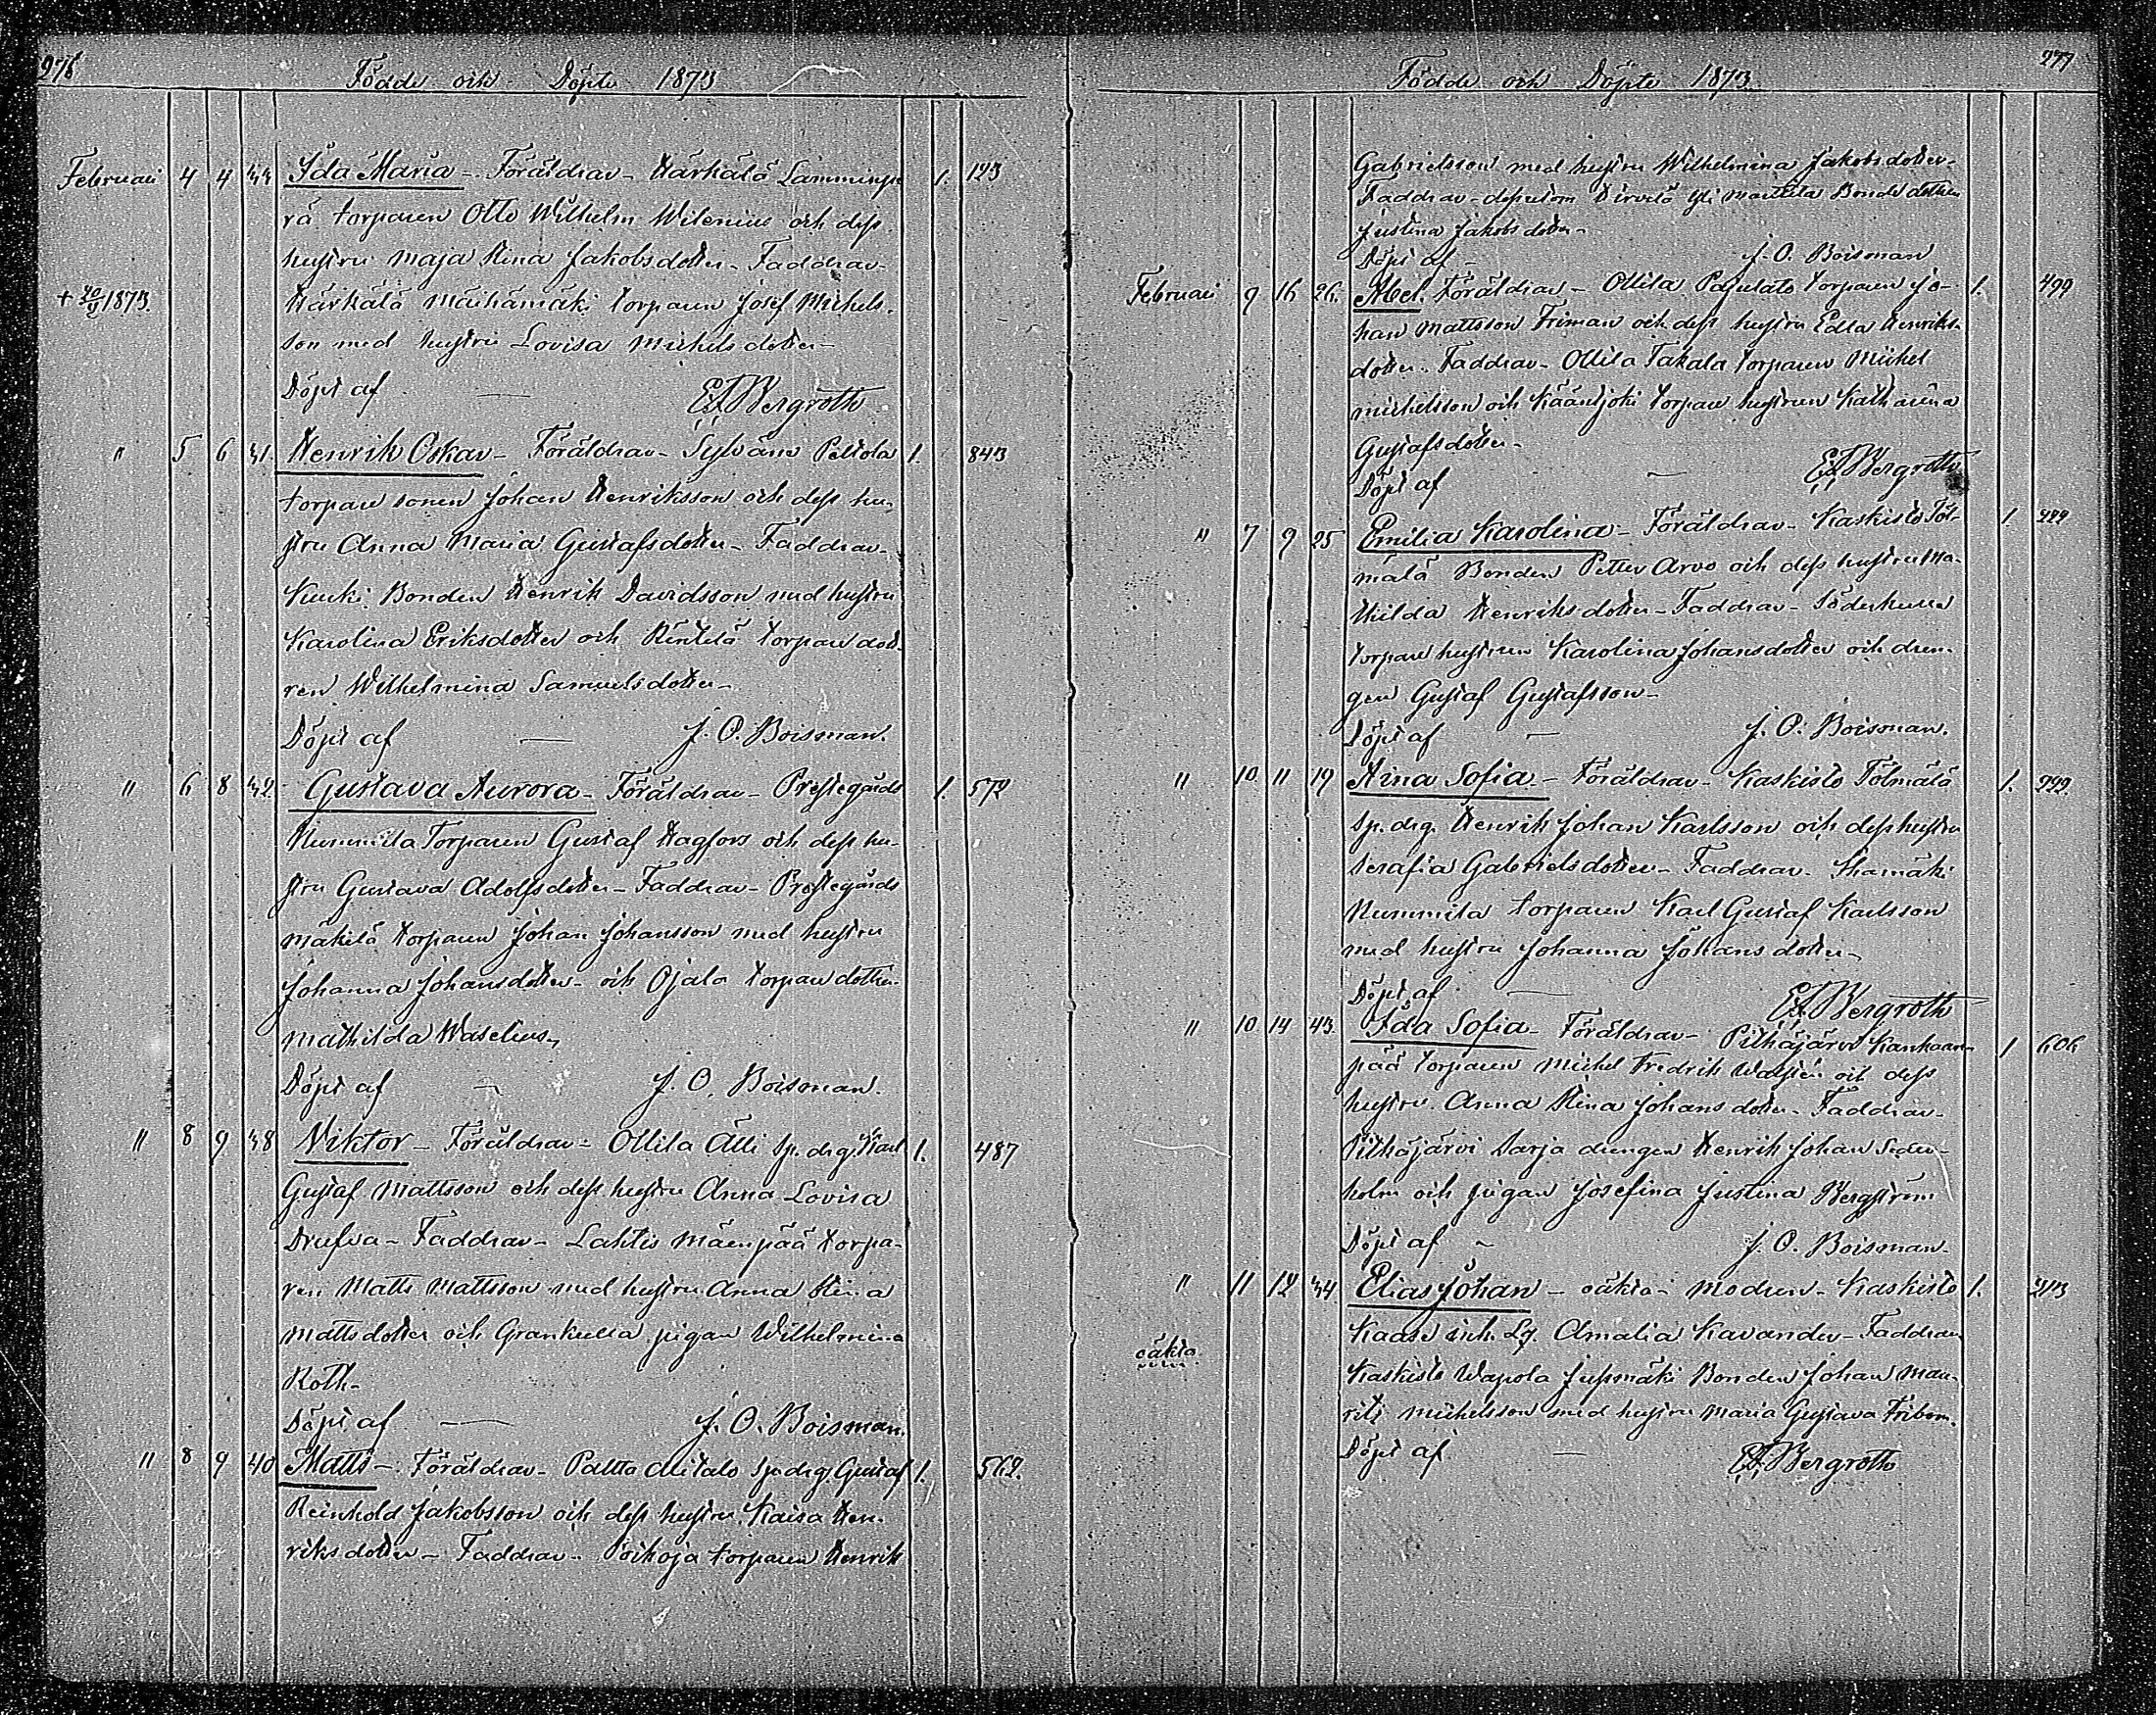 276
Födde och Döpte 1873
Februari 4 4 44 Ida Maria - Föräldrar - Härkälä Lamminpe 1. 123
rä torparen Otto Wilhelm Wilenius och dess
hustru Maja Stina Jakobsdotter - Faddrar -
+ 1873. Härkälä Maihamäki torparen Josef Michels-
son med hustru Lovisa Michelsdotter -
Döpt af — E A Bergroth
" 5 6 41. Henrik Oskar - Föräldrar - Sylväne Peltola 1. 843
torpare sonen Johan Henriksson och dess hu-
stru Anna Maria Gustafsdotter - Faddrar -
Kurki Bonden Henrik Davidsson med hustru
Karolina Eriksdotter och Rintelä torpare dott
ren Wilhelmina Samuelsdotter -
Döpt af — J. O. Boisman.
" 6 8 42. Gustava Aurora - Föräldrar - Prestegårds 1. 572
Nummila Torparen Gustaf Hagfors och dess hu-
stru Gustava Adolfsdotter - Faddrar - Prestegårds
Mäkelä torparen Johan Johansson med hustru
Johanna Johansdotter - och Ojala torpare dottren
Mathilda Waselius -
Döpt af - J. O. Boisman.
" 8 9 38 Viktor - Föräldrar - Ollila Alli Sp. drg. Karl 1. 487
Gustaf Mattsson och dess hustru Anna Lovisa
Drufva - Faddrar - Lahtis Mäenpää torpa-
ren Matts Mattsson med hustru Anna Stina
Mattsdotter och Grankulla pigan Wilhelmina
Roth -
Döpt af — J. O. Boisman.
" 8 9 40 Matts - Föräldrar - Paltta Sp. drg. Gustaf 1. 562.
Reinhold Jakobsson och dess hustru Kaisa Hen-
riksdotter - Faddrar - torparen Henrik
277
Födde och Döpte 1873
Gabrielsson med hustru Wilhelmina Jakobsdotter -
Faddrar - dessutom Hirvelä Yli Marttila Bonde dottren
Justina Jakobsdotter -
Döpt af - J. O. Boisman
Februari 9 16 26. Abel. Föräldrar - Ollila torparen Jo- 1. 499
han Mattsson Friman och dess hustru Edla Henriks-
dotter - Faddrar - Ollila Takala torparen Michel
Michelsson och Kääntjoki torpare hustrun Katharina
Gustafsdotter -
Döpt af — E A Bergroth
" 7 9 25 Emilia Karolina - Föräldrar - Kaskisto Töl- 1. 222
mälä Bonden Petter Arvo och dess hustru Ma-
thilda Henriksdotter - Faddrar - Söderkulla
torpare hustrun Karolina Johansdotter och dren-
gen Gustaf Gustafsson -
Döpt af — J. O. Boisman.
" 10 11 19 Stina Sofia - Föräldrar - Kaskisto Tölmälä 1. 222.
Sp. drg. Henrik Johan Karlsson och dess hustru
Serafia Gabrielsdotter - Faddrar - Ihamäki
Nummila torparen Karl Gustaf Karlsson
med hustru Johanna Johansdotter -
Döpt af — E A Bergroth
" 10 14 43. Ida Sofia - Föräldrar - Pitkäjärvi Kankaan- 1 606
pää torparen Michel Fredrik och dess
hustru Anna Stina Johansdotter - Faddrar -
Pitkäjärvi Sarja drengen Henrik Johan Seder-
holm och pigan Josefina Justina Bergström
Döpt af - J. O. Boisman -
" 11 12 44 Elias Johan - oäkta - Modren - Kaskisto 1. 213
oäkta. Kaase inh. Lg. Amalia Kavander - Faddrar
Kaskisto Wapola Jussmäki Bonden Johan Mau-
ritz Michelsson med hustru Maria Gustava Fribom.
Döpt af — E A Bergroth